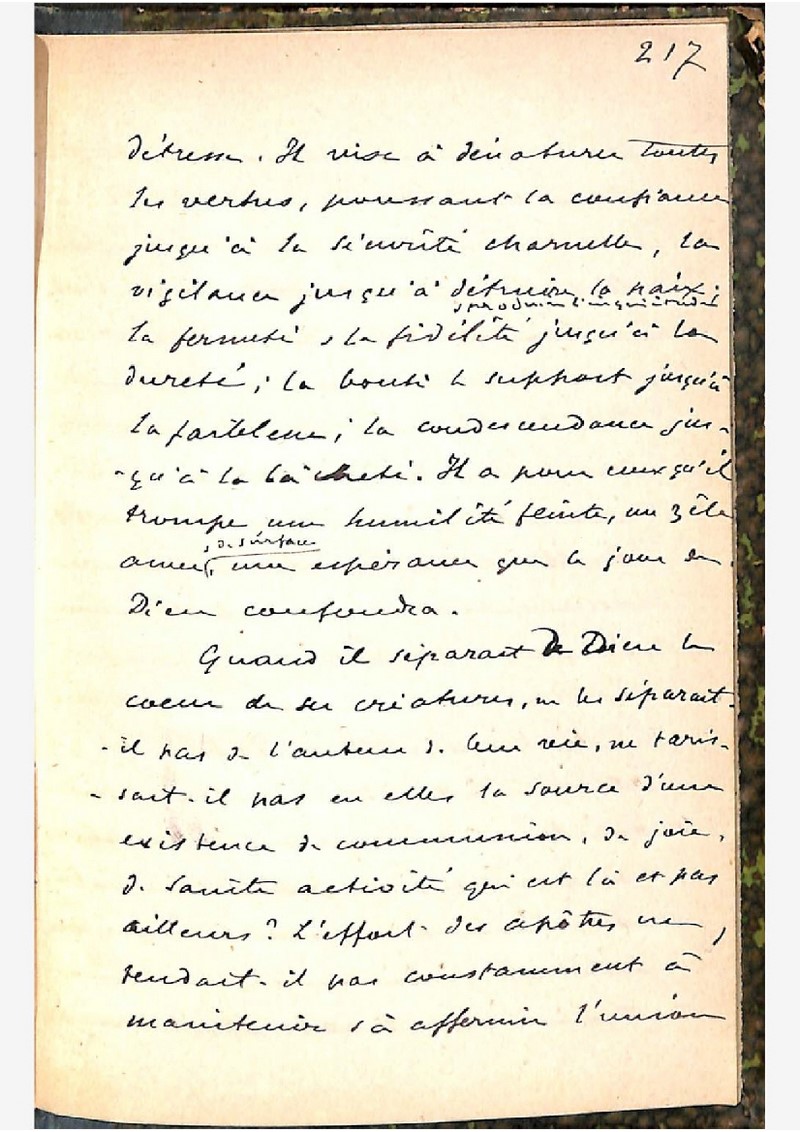 217
détresse. Il vise à dénaturer toutes
les vertus, poussant la confiance
jusqu'à la sécurité charnelle, la
vigilance jusqu'à détruire la paix,
& produire l'inquiétude
la fermeté & la fidélité jusqu'à la
dureté ; la bonté le support jusqu'à
la faiblesse ; la condescendance jus-
-qu'à la lâcheté. Il a pour ceux qu'il
trompe une humilité feinte, un zêle
& de surface
amer, une espérance que le jour de
Dieu confondra.
Quand il séparait de Dieu le
coeur de ses créatures, ne les séparait-
-il pas de l'auteur de leur vie, ne taris-
-sait-il pas en elles la source d'une
existence de communion, de joie,
de sainte activité qui est là et pas
ailleurs ? L'effort des apôtres ne
tendait-il pas constamment à
maintenir & à affermir l'union